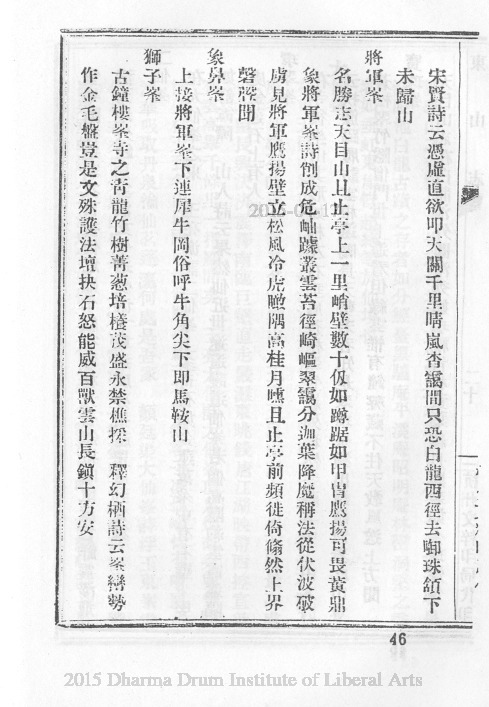 宋賢詩云憑虛直欲叩天關千里晴嵐杳靄間只恐白龍西徑去啣珠頷下
未歸山
將軍峯
名勝志天目山且止亭上一里峭壁數十仭如蹲踞如甲冑鷹揚可畏黃鼎
象將軍峯詩削成危岫躡叢雲苔徑崎嶇翠靄分迦葉降魔稱法從伏波破
虜見將軍鷹揚壁立松風冷虎瞰隅高桂月曛且止亭前頻徙倚翛然上界
磬聲聞
象鼻峯
上接將軍峯下連犀牛岡俗呼牛角尖下即馬鞍山
獅子峯
古鐘樓峯寺之靑龍竹樹菁葱培植茂盛永禁樵採 釋幻栖詩云峯巒勢
作金毛盤豈是文殊護法壇抉石怒能威百獸雲山長鎭十方安
46
2015 Dharma Drum Institute of Liberal Arts